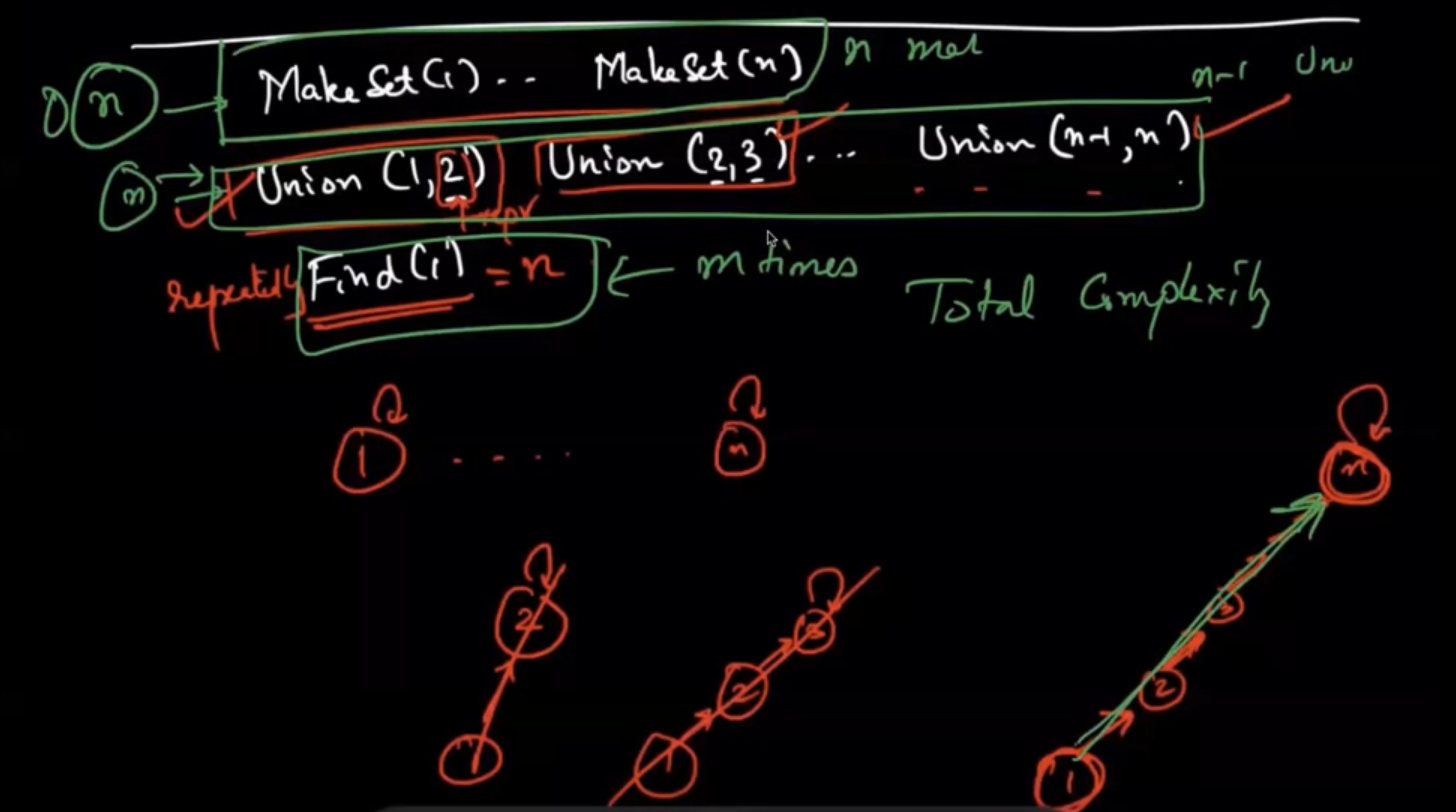 O(n) → MakeSet(1) .. MakeSet(n) n
n-1
(n) → Union (1,2) Union (2,3) ... Union (n-1, n)
repr
repeatedly Find(1) = n ← m times
Total Complexity
1 .... n
n
2 3 3
2 2
1 1 1